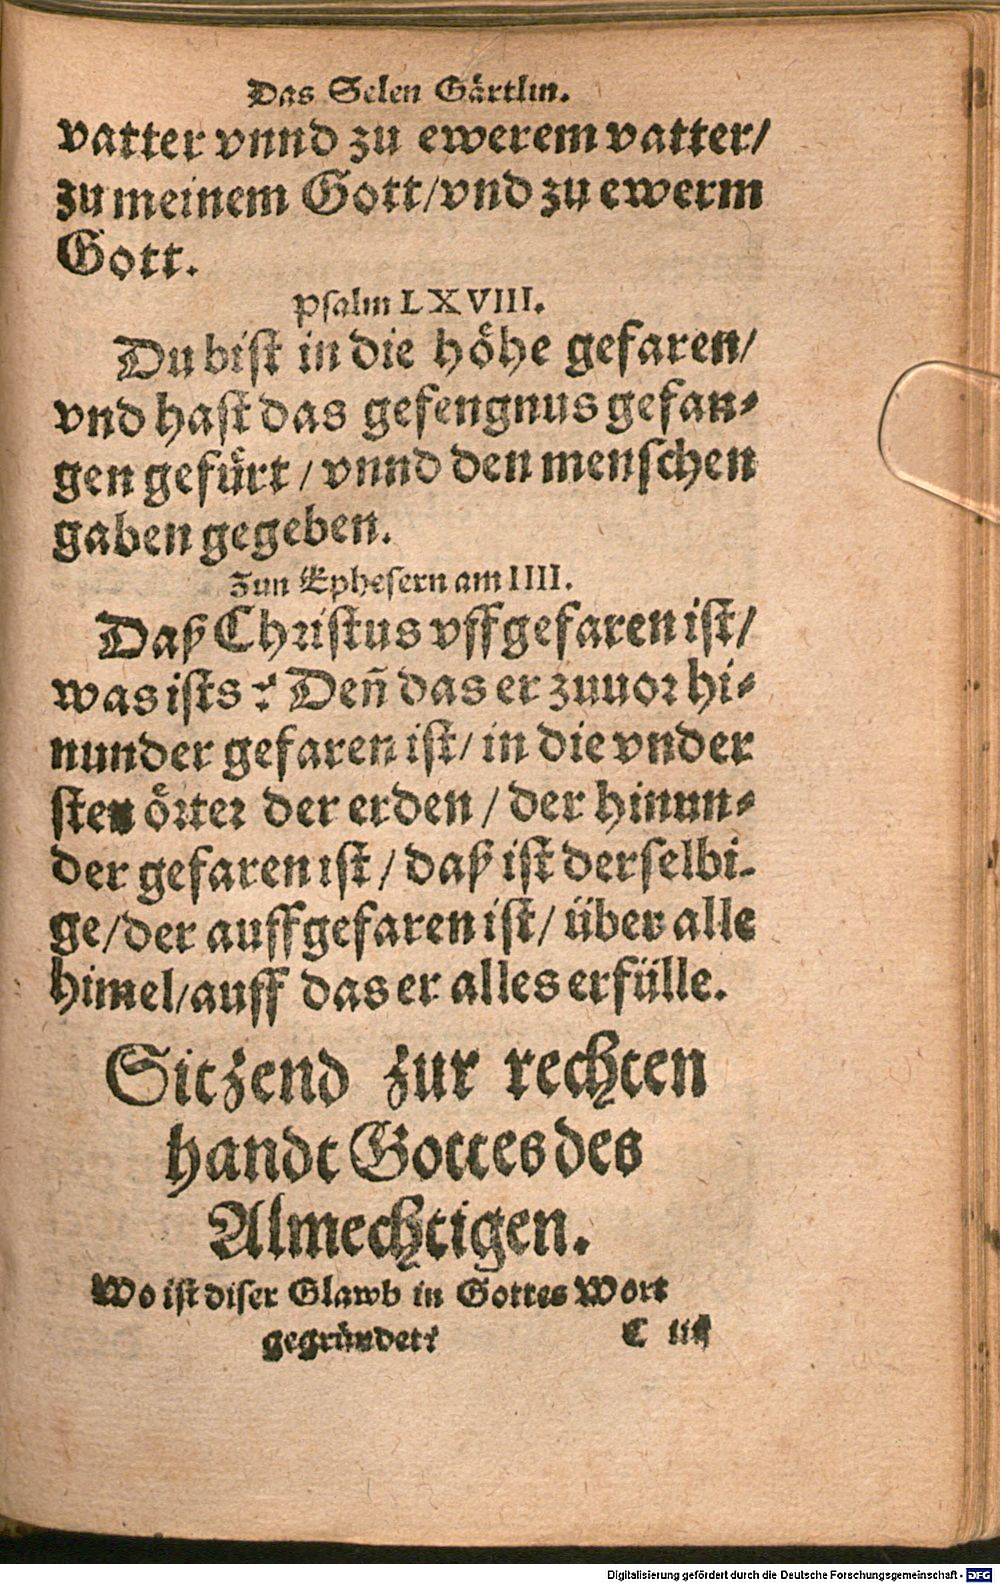 Das Selen Gärtlin.
vatter vnnd zu ewerem vatter/
zu meinem Gott/vnd zu ewerm
Gott.
Psalm LXVIII.
Du bist in die höhe gefaren/
vnd hast das gefengnus gefan-
gen gefürt / vnnd den menschen
gaben gegeben.
Zun Ephesern am IIII.
Daß Christus vffgefaren ist/
was ists? Deñ das er zuuor hi-
nunder gefaren ist/ in die vnder
sten örter der erden / der hinun-
der gefaren ist / daß ist derselbi-
ge/der auffgefaren ist/ über alle
himel/auff das er alles erfülle.
Sitzend zur rechten
handt Gottes des
Almechtigen.
Wo ist diser Glawb in Gottes Wort
gegründet?
C iiij
Digitalisierung gefördert durch die Deutsche Forschungsgemeinschaft - DFG